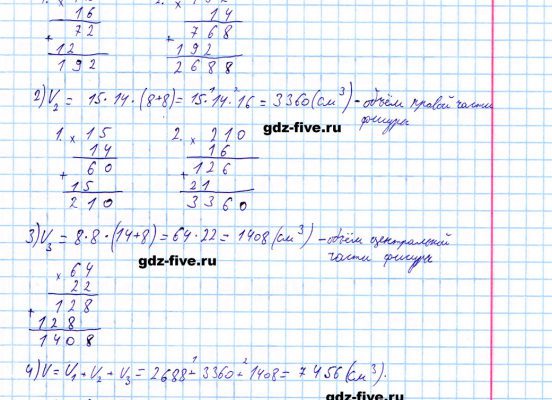 1. × 12 2. × 192
16 14
72 768
+ 12 + 192
192 2688
2) V₂ = 15·14·(8+8) = 15·14·16 = 3360 (см³) – объём правой части
фигуры
gdz-five.ru
1. × 15 2. × 210
14 16
60 126
+ 15 + 21
210 3360
3) V₃ = 8·8·(14+8) = 64·22 = 1408 (см³) – объём центральной
части фигуры
gdz-five.ru
× 64
22
128
+ 128
1408
4) V = V₁ + V₂ + V₃ = 2688 + 3360 + 1408 = 7456 (см³).